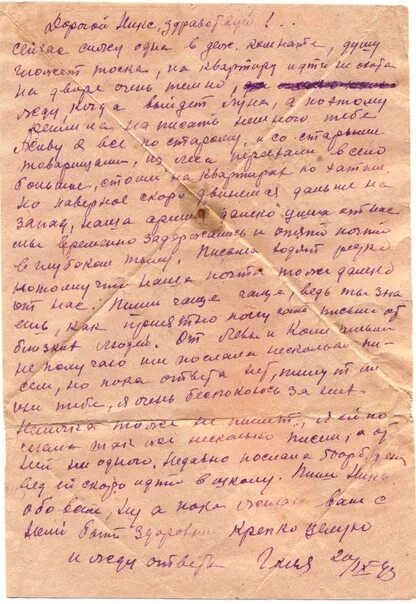 Дорогой Никс, здравствуй!...
Сейчас сижу одна в деж. комнате, душу
гложет тоска, на квартиру идти не охота
на дворе очень темно,
жду, когда выйдет луна, а поэтому
решила написать немного тебе.
Живу я все по старому, и со старыми
товарищами, из леса переехали в село
большое, стоим на квартирах по хатам.
Но наверное скоро двинемся дальше на
запад, наша армия далеко ушла от нас
мы временно задержались и опять почти
в глубоком тылу. Письма ходят редко
потому что наша почта тоже далеко
от нас. Пиши чаще чаще, ведь ты зна
ешь, как приятно получать письма от
близких людей. От Левы и Коли письма
не получаю им послала несколько пи
сем, но пока ответа нет, пишут ли
они тебе, я очень беспокоюсь за них.
тоже не пишет, я ей по
слала так же несколько писем, а от
ней ни одного. Недавно послала 600 руб. денег
вед ей скоро идти в школу. Пиши Никс
обо всем, ну а пока желаю вам с
быть здоровыми крепко целую
и жду ответа Галя 20/IX 43